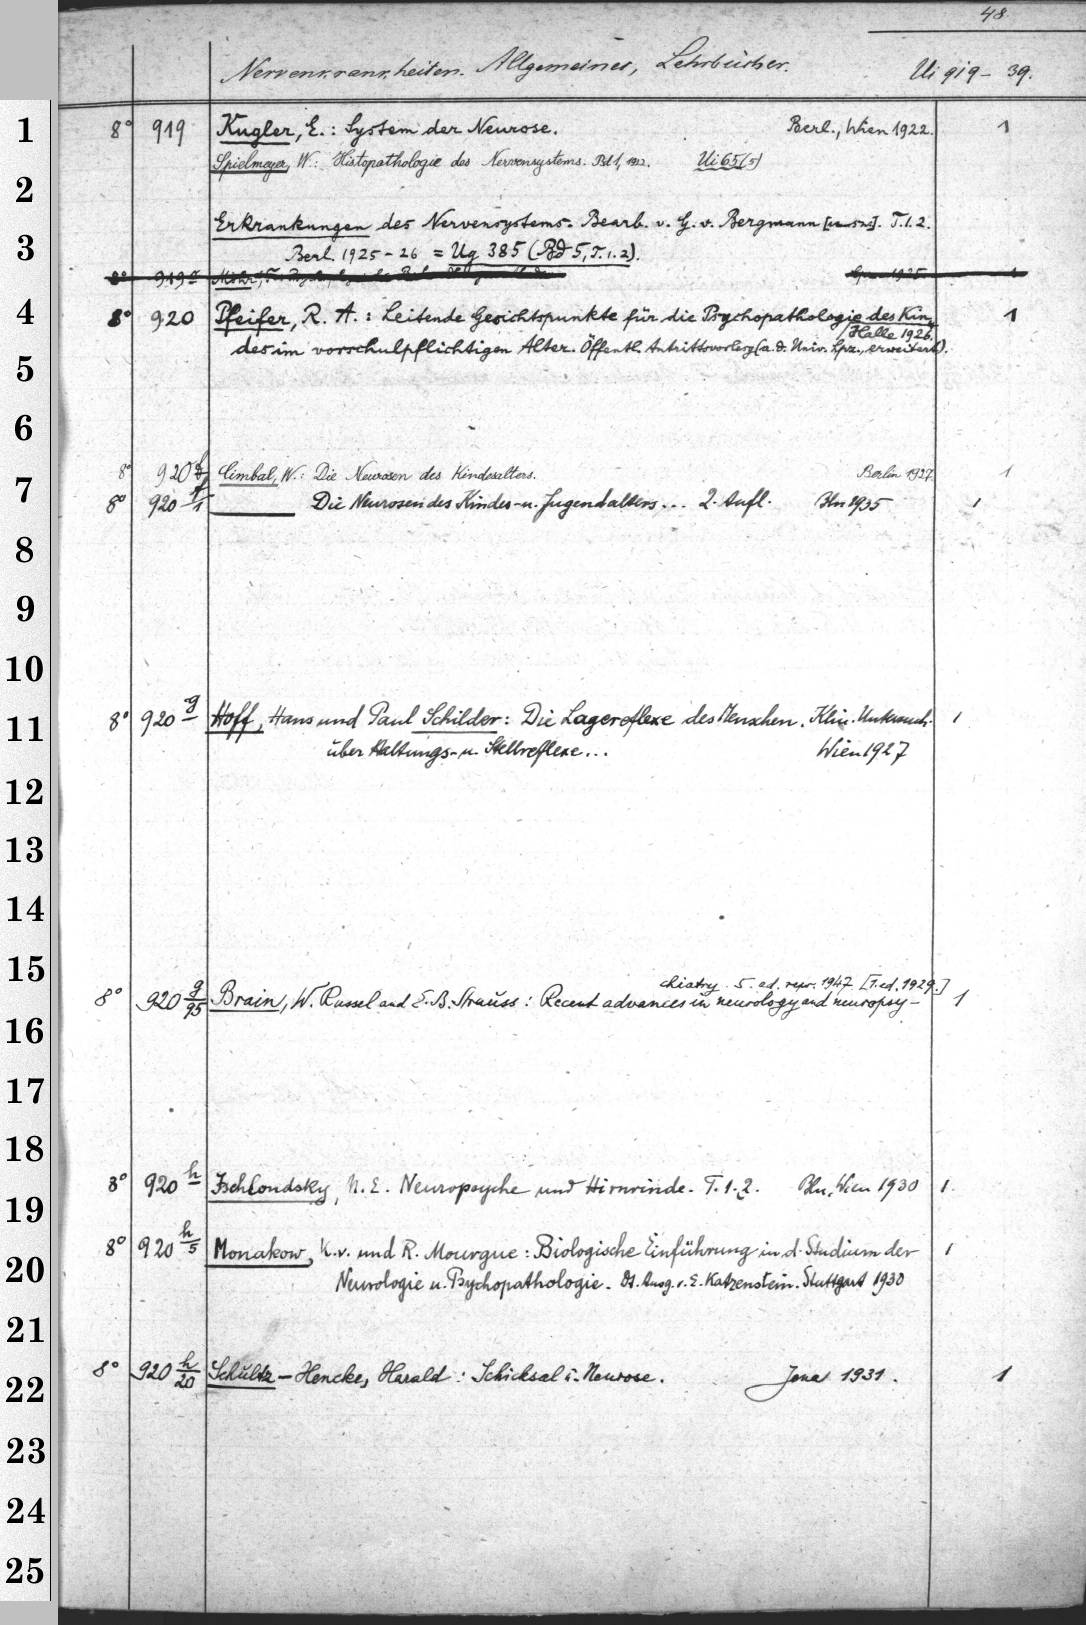 48.
Nervenkrankheiten. Allgemeines, Lehrbücher. Ui 919 - 39.
1
8° 919 Kugler, E.: System der Neurose. Berl., Wien 1922. 1
Spielmeyer, W.: Histopathologie des Nervensystems. Bd 1, 1922. Ui 65(5)
2
Erkrankungen des Nervensystems. Bearb. v. G. v. Bergmann [u. so.]. T.1.2.
3
Berl. 1925-26 = Ug 385 (Bd 5, T.1.2).
8° 919 Mohr, 1925. 1
4
8° 920 Pfeifer, R. A.: Leitende Gesichtspunkte für die Psychopathologie des Kin- 1
Halle 1926.
des im vorschulpflichtigen Alter. Öffentl. Antrittsvorlesg (a. d. Univ. Lpz., erweitert).
5
6
8° 920 f Cimbal, W.: Die Neurosen des Kindesalters. Berlin 1927. 1
7
8° 920 f/1 ____ Die Neurosen des Kindes- u. Jugendalters... 2. Aufl. Bln 1935 1
8
9
10
8° 920 g Hoff, Hans und Paul Schilder: Die Lagereflexe des Menschen. Klin. Untersuch. 1
11
über Haltungs- u. Stellreflexe... Wien 1927
12
13
14
15
chiatry. 5. ed. repr. 1947 [1.ed. 1929.]
8° 920 g/95 Brain, W. Russel and E. B. Strauss: Recent advances in neurology and neuropsy- 1
16
17
18
8° 920 h Ischlondsky, N. E. Neuropsyche und Hirnrinde. T.1.2. Bln, Wien 1930 1.
19
8° 920 h/5 Monakow, K. v. und R. Mourgue: Biologische Einführung in d. Studium der 1
20
Neurologie u. Psychopathologie. Dt. Ausg. v. E. Katzenstein. Stuttgart 1930
21
8° 920 h/20 Schultz-Hencke, Harald: Schicksal u. Neurose. Jena 1931. 1
22
23
24
25